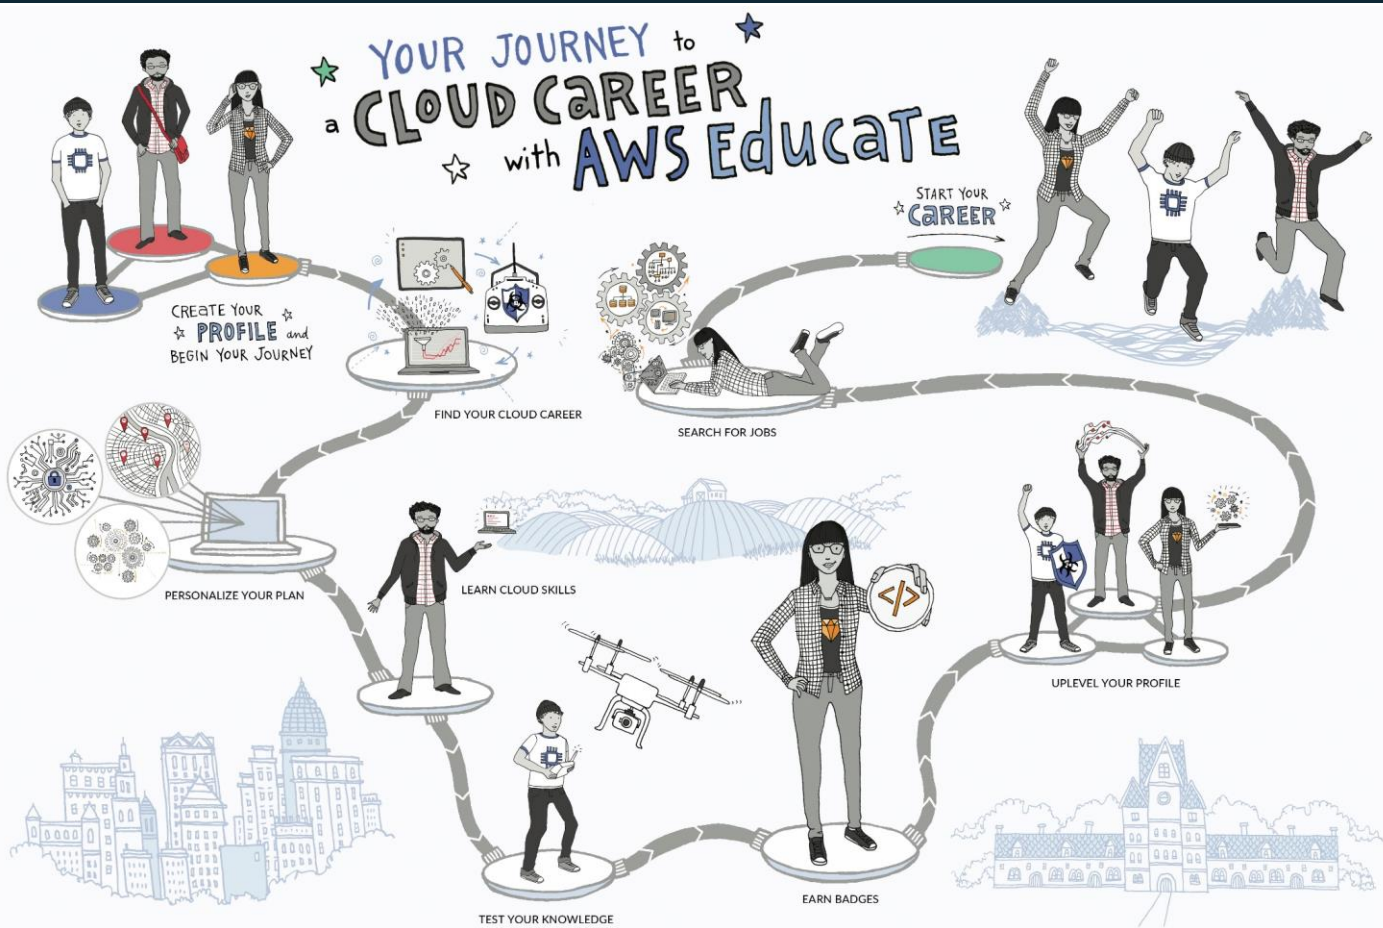 YOUR JOURNEY to
a CLOUD CAREER
with AWS EducaTE
CREATE YOUR
PROFILE and
BEGIN YOUR JOURNEY
FIND YOUR CLOUD CAREER
PERSONALIZE YOUR PLAN
LEARN CLOUD SKILLS
TEST YOUR KNOWLEDGE
EARN BADGES
</>
UPLEVEL YOUR PROFILE
SEARCH FOR JOBS
START YOUR
CAREER